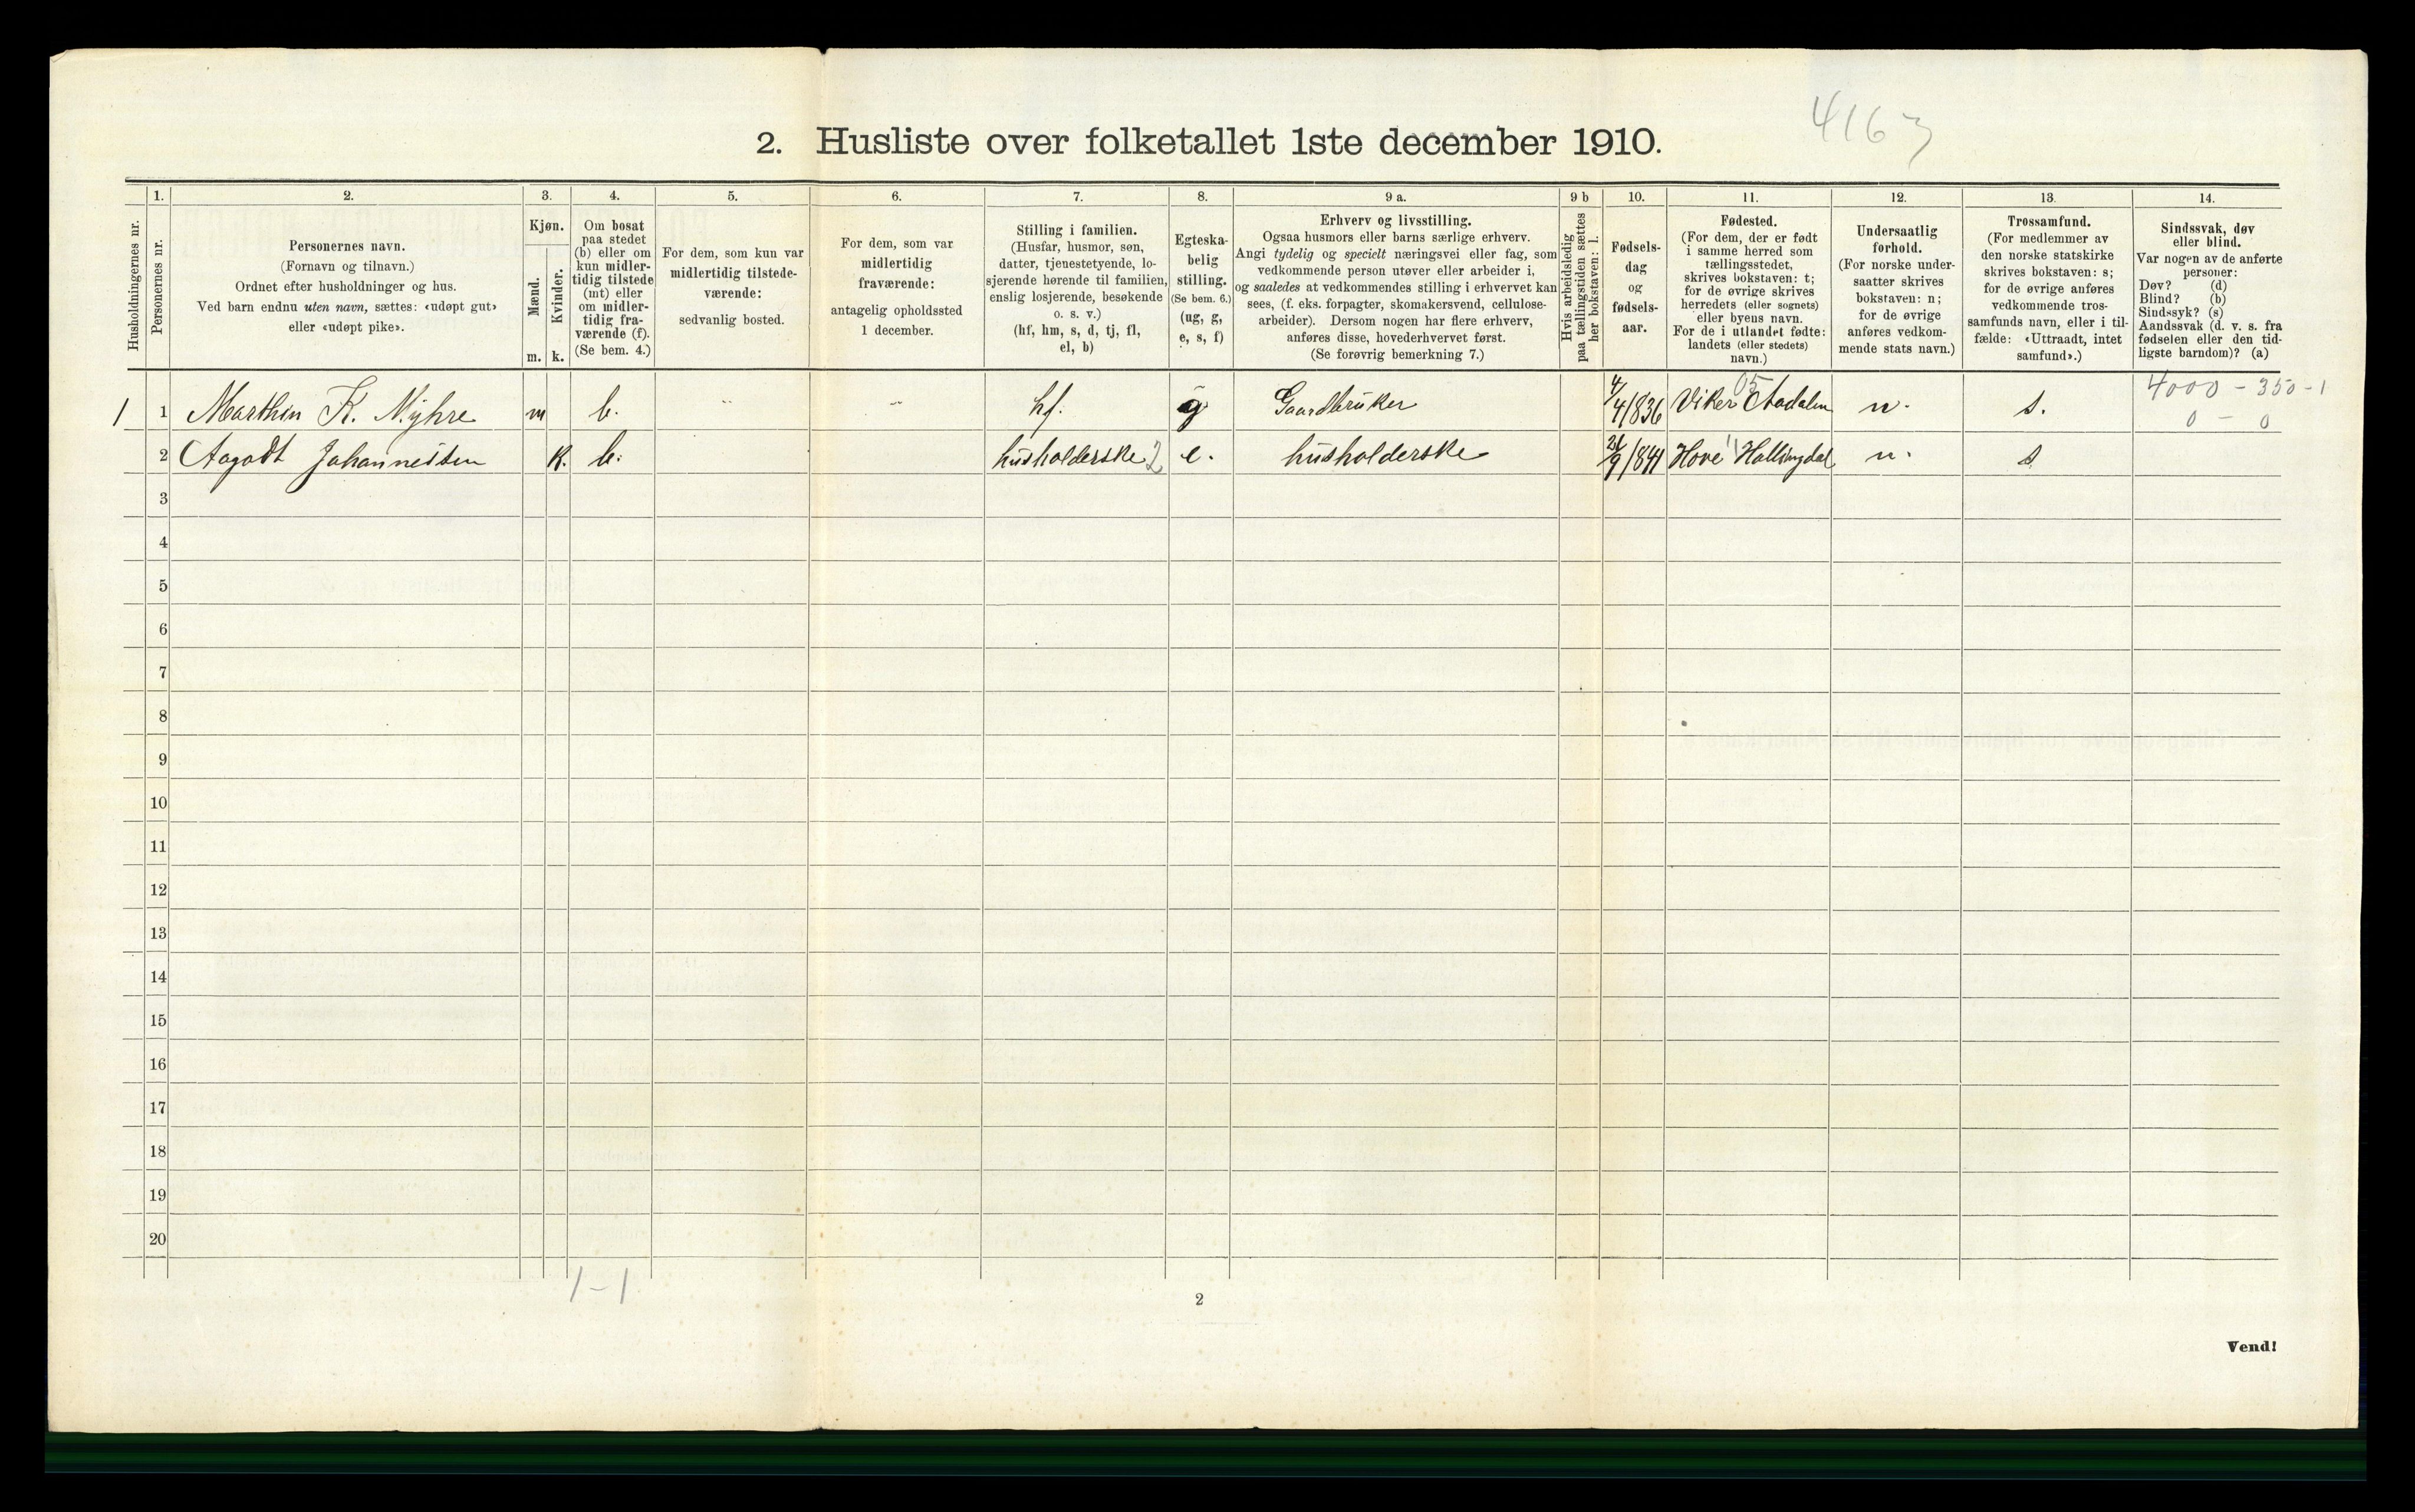 4163
2. Husliste over folketallet 1ste december 1910.
Husholdningernes nr.
1.
Personernes nr.
2.
Personernes navn.
(Fornavn og tilnavn.)
Ordnet efter husholdninger og hus.
Ved barn endnu uten navn, sættes: «udøpt gut»
eller «udøpt pike».
3.
Kjøn.
Mænd.
Kvinder.
m. k.
4.
Om bosat
paa stedet
(b) eller om
kun midler-
tidig tilstede
(mt) eller
om midler-
tidig fra-
værende (f).
(Se bem. 4.)
5.
For dem, som kun var
midlertidig tilstede-
værende:
sedvanlig bosted.
6.
For dem, som var
midlertidig
fraværende:
antagelig opholdssted
1 december.
7.
Stilling i familien.
(Husfar, husmor, søn,
datter, tjenestetyende, lo-
sjerende hørende til familien,
enslig losjerende, besøkende
o. s. v.)
(hf, hm, s, d, tj, fl,
el, b)
8.
Egteska-
belig
stilling.
(Se bem. 6.)
(ug, g,
e, s, f)
9 a.
Erhverv og livsstilling.
Ogsaa husmors eller barns særlige erhverv.
Angi tydelig og specielt næringsvei eller fag, som
vedkommende person utøver eller arbeider i,
og saaledes at vedkommendes stilling i erhvervet kan
sees, (f. eks. forpagter, skomakersvend, cellulose-
arbeider). Dersom nogen har flere erhverv,
anføres disse, hovederhvervet først.
(Se forøvrig bemerkning 7.)
9 b
Hvis arbeidsledig
paa tællingstiden sættes
her bokstaven: l.
10.
Fødsels-
dag
og
fødsels-
aar.
11.
Fødested.
(For dem, der er født
i samme herred som
tællingsstedet,
skrives bokstaven: t;
for de øvrige skrives
herredets (eller sognets)
eller byens navn.
For de i utlandet fødte:
landets (eller stedets)
navn.)
12.
Undersaatlig
forhold.
(For norske under-
saatter skrives
bokstaven: n;
for de øvrige
anføres vedkom-
mende stats navn.)
13.
Trossamfund.
(For medlemmer av
den norske statskirke
skrives bokstaven: s;
for de øvrige anføres
vedkommende tros-
samfunds navn, eller i til-
fælde: «Uttraadt, intet
samfund».)
14.
Sindssvak, døv
eller blind.
Var nogen av de anførte
personer:
Døv? (d)
Blind? (b)
Sindssyk? (s)
Aandssvak (d. v. s. fra
fødselen eller den tid-
ligste barndom)? (a)
1 1 Marthin K. Myhre m b. " " hf. g Gaardbruker 4/4/836 Viker Aadalen 05 n. s. 4000 - 350 - 1
0 - 0
2 Aagodt Johannessen k. b. husholderske 2 e. husholderske 21/9/841 Hove Hallingdal n. s
3
4
5
6
7
8
9
10
11
12
13
14
15
16
17
18
19
20
1-1
2
Vend!